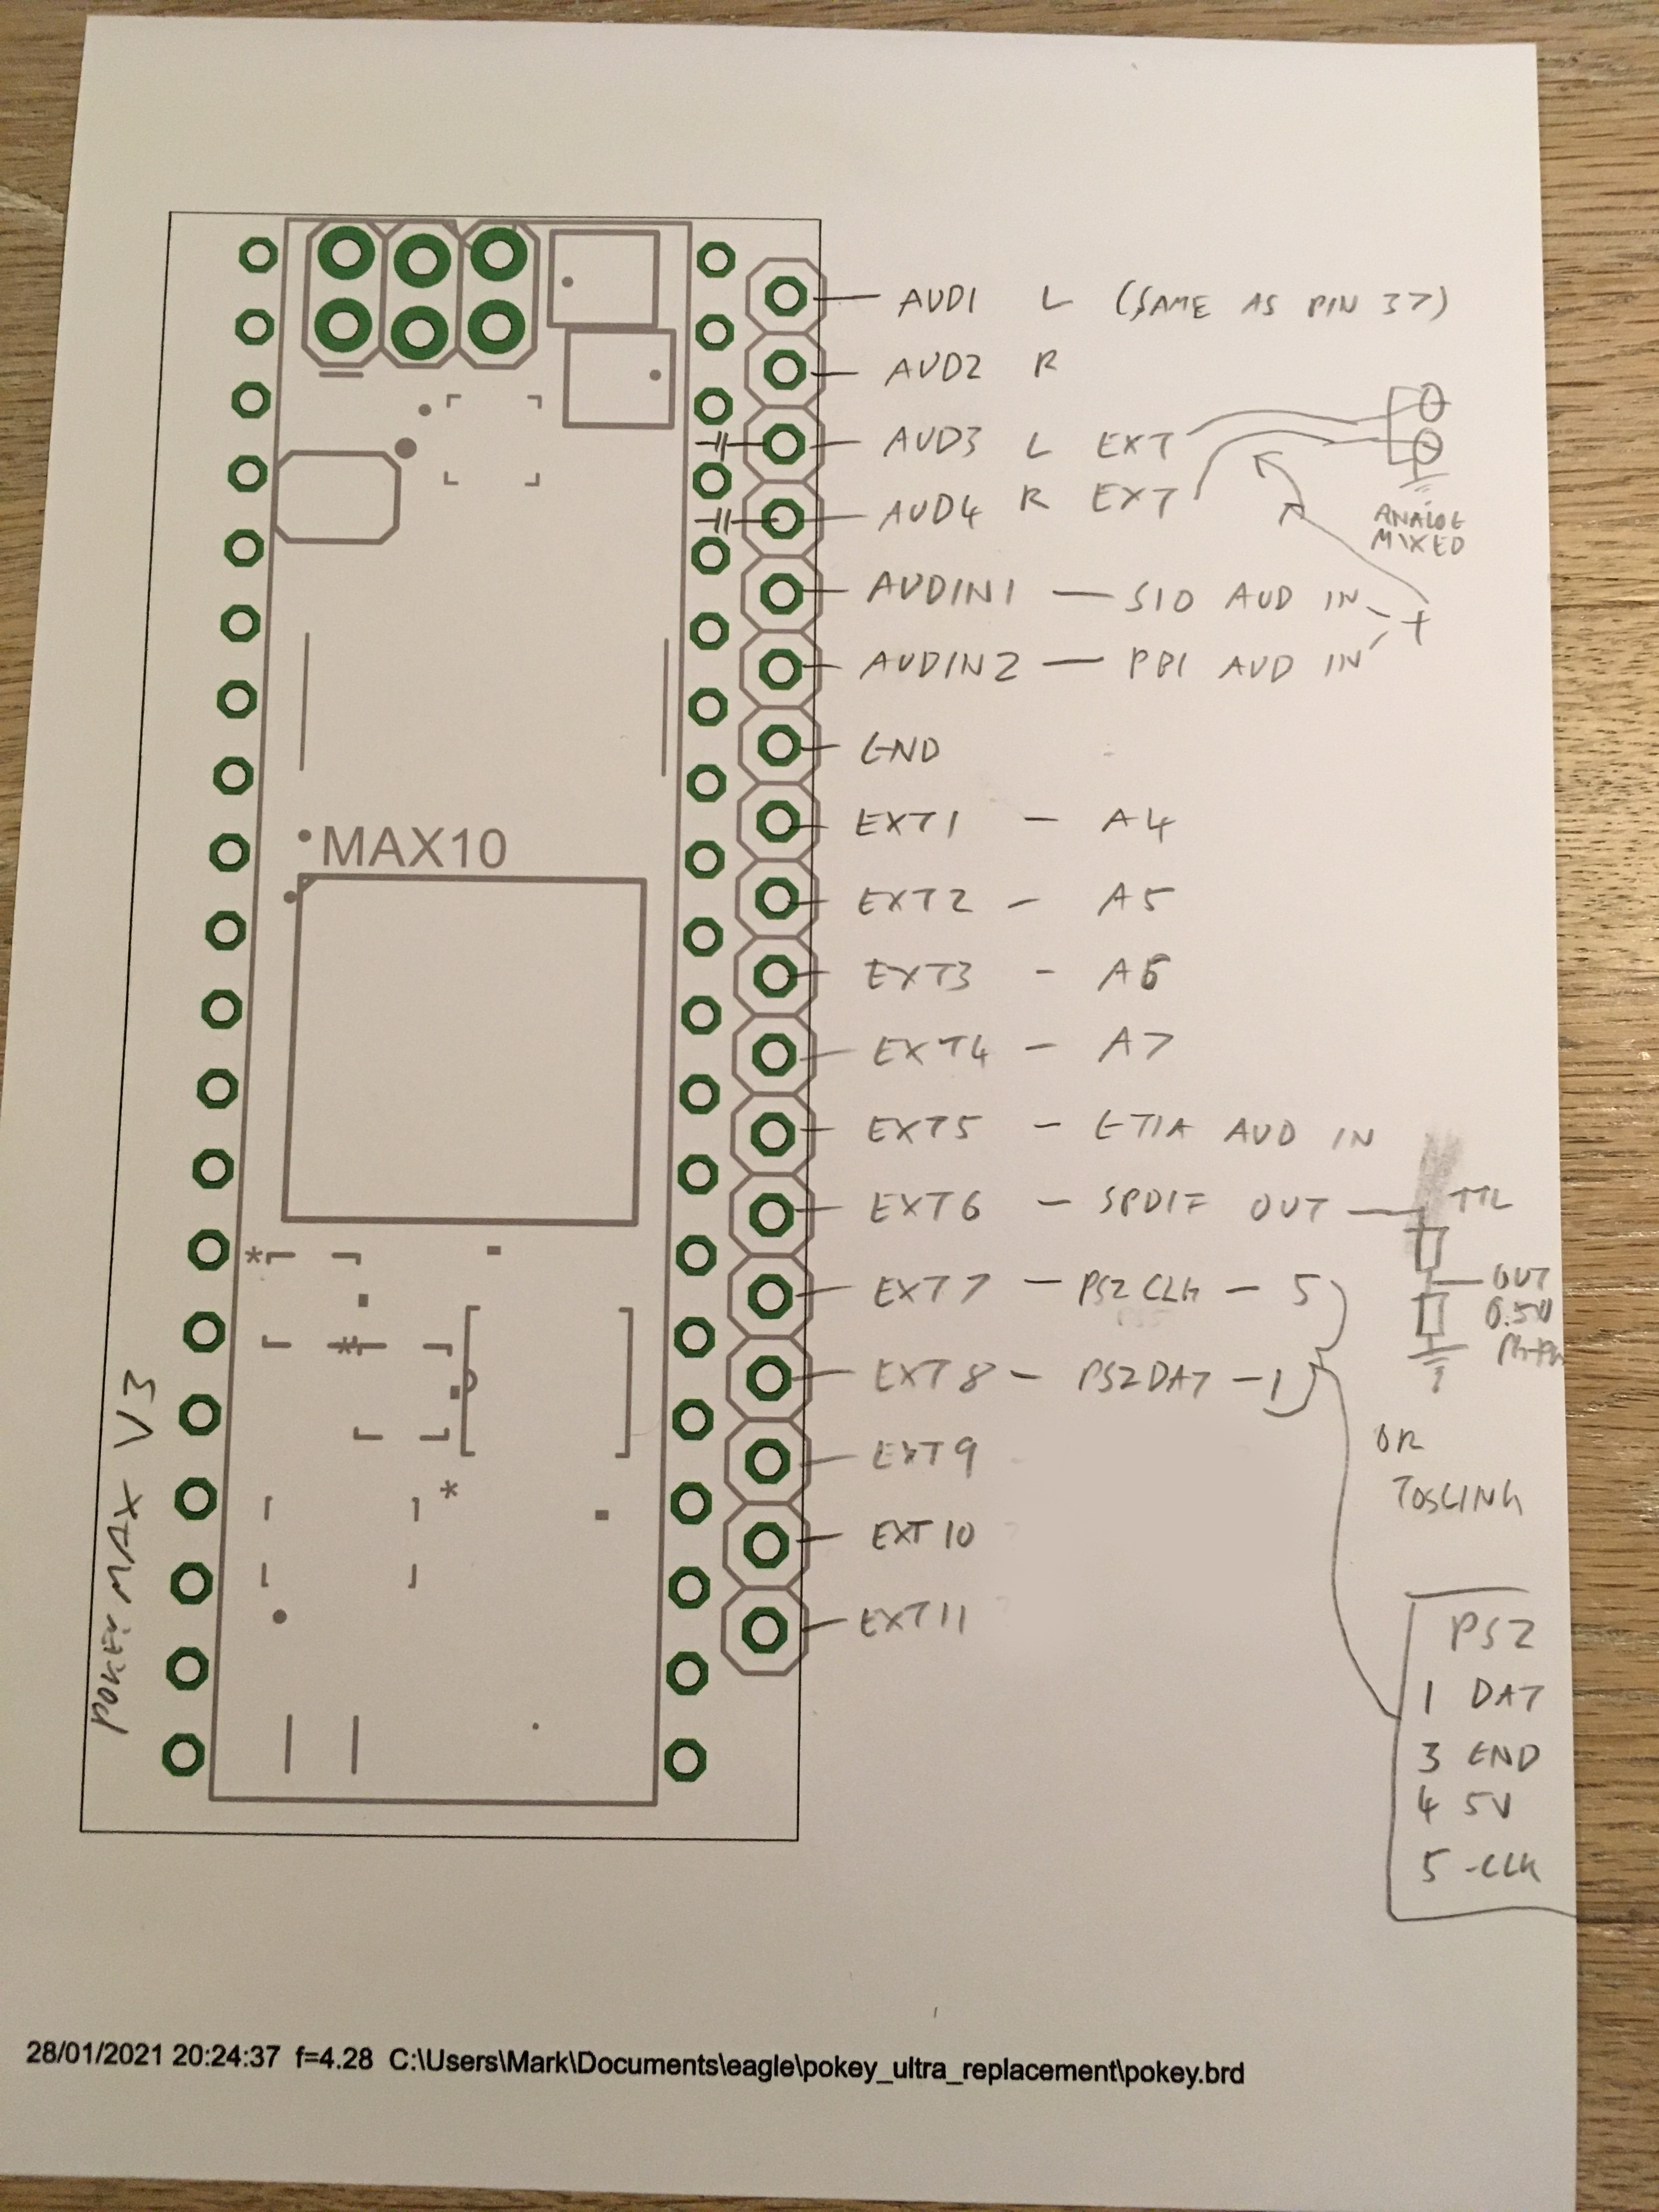 AUD1 L (SAME AS PIN 37)
AUD2 R
AUD3 L EXT
AUD4 R EXT
ANALOG
MIXED
AUDIN1 — SIO AUD IN
+
AUDIN2 — PBI AUD IN
GND
EXT1 - A4
MAX10
EXT2 - A5
EXT3 - A6
EXT4 - A7
EXT5 - GTIA AUD IN
EXT6 - SPDIF OUT — TTL
OUT
0.5V
EXT7 - PS2CLK - 5
EXT8 - PS2DAT - 1
EXT9
OR
TOSLINK
EXT10
EXT11
POKEYMAX V3
PS2
1 DAT
3 GND
4 5V
5 -CLK
28/01/2021 20:24:37 f=4.28 C:\Users\Mark\Documents\eagle\pokey_ultra_replacement\pokey.brd